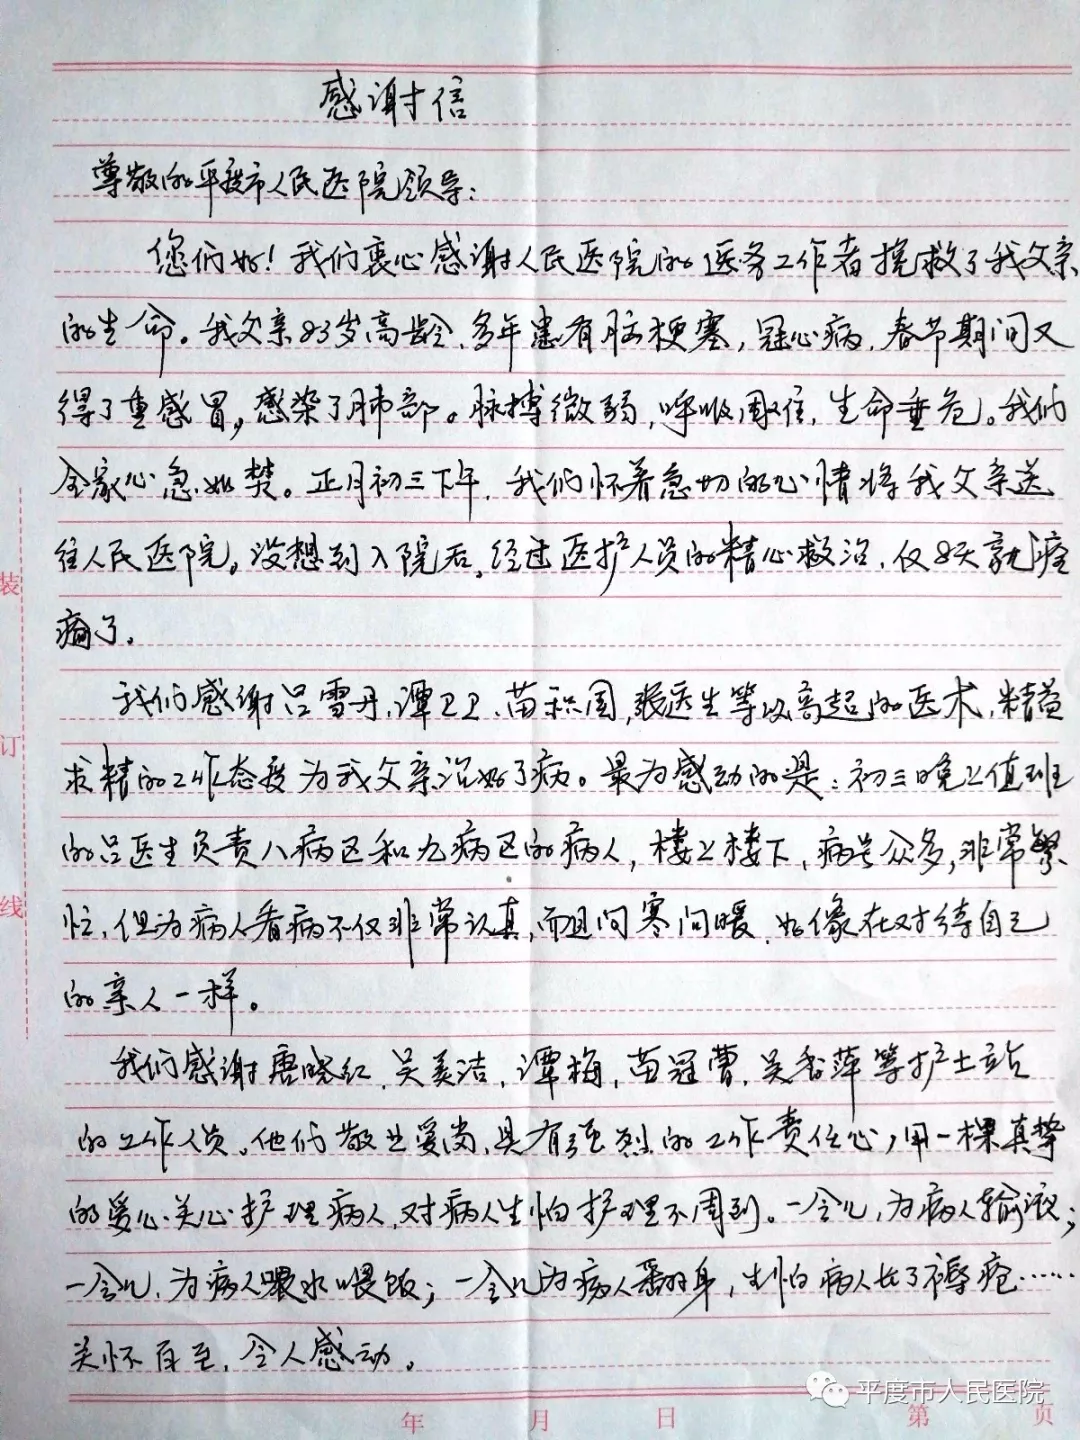 感谢信
尊敬的平度市人民医院领导：
您们好！我们衷心感谢人民医院的医务工作者挽救了我父亲
的生命。我父亲83岁高龄，多年患有脑梗塞，冠心病，春节期间又
得了重感冒，感染了肺部。脉搏微弱，呼吸困难，生命垂危。我们
全家心急如焚。正月初三下午，我们怀着急切的心情将我父亲送
往人民医院。没想到入院后，经过医护人员的精心救治，仅8天就痊
癒了。
我们感谢吕雪丹，谭卫卫，苗积周，张医生等以高超的医术，精益
求精的工作态度为我父亲治好了病。最为感动的是：初三晚上值班
的吕医生负责八病区和九病区的病人，楼上楼下，病号众多，非常繁
忙，但为病人看病不仅非常认真，而且问寒问暖，好像在对待自己
的亲人一样。
我们感谢唐晓红，吴美洁，谭梅，苗冠曹，吴香萍等护士站
的工作人员。他们敬业爱岗，具有强烈的工作责任心，用一棵真挚
的爱心关心护理病人，对病人生怕护理不周到。一会儿，为病人输液；
一会儿，为病人喂水喂饭；一会儿为病人翻身，生怕病人长了褥疮……
关怀百至，令人感动。
装
订
线
年 月 日 第 页
平度市人民医院